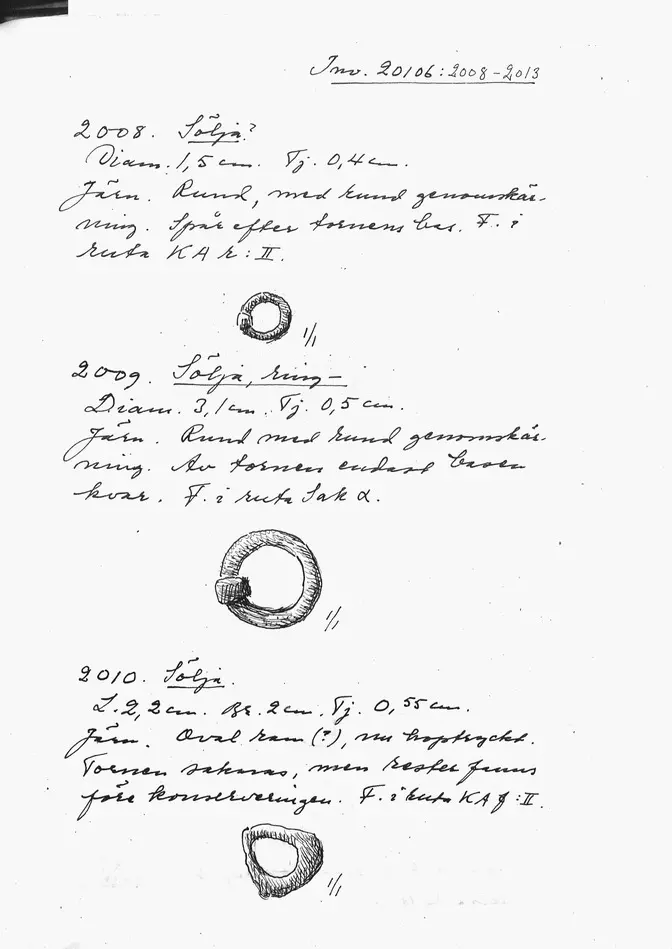 Inv. 20106:2008-2013
2008. Sölja?
Diam. 1,5 cm. Tj. 0,4 cm.
Järn. Rund, med rund genomskär-
ning. Spår efter tornens bas. F. i
ruta KA r:II.
1/1
2009. Sölja, ring-
Diam. 3,1 cm. Tj. 0,5 cm.
Järn. Rund med rund genomskär-
ning. Av tornen endast basen
kvar. F. i ruta Sak α.
1/1
2010. Sölja.
L. 2,2 cm. Br. 2 cm. Tj. 0,55 cm.
Järn. Oval ram (?), nu hoptryckt.
Tornen saknas, men rester fanns
före konserveringen. F. i ruta KA f:II.
1/1